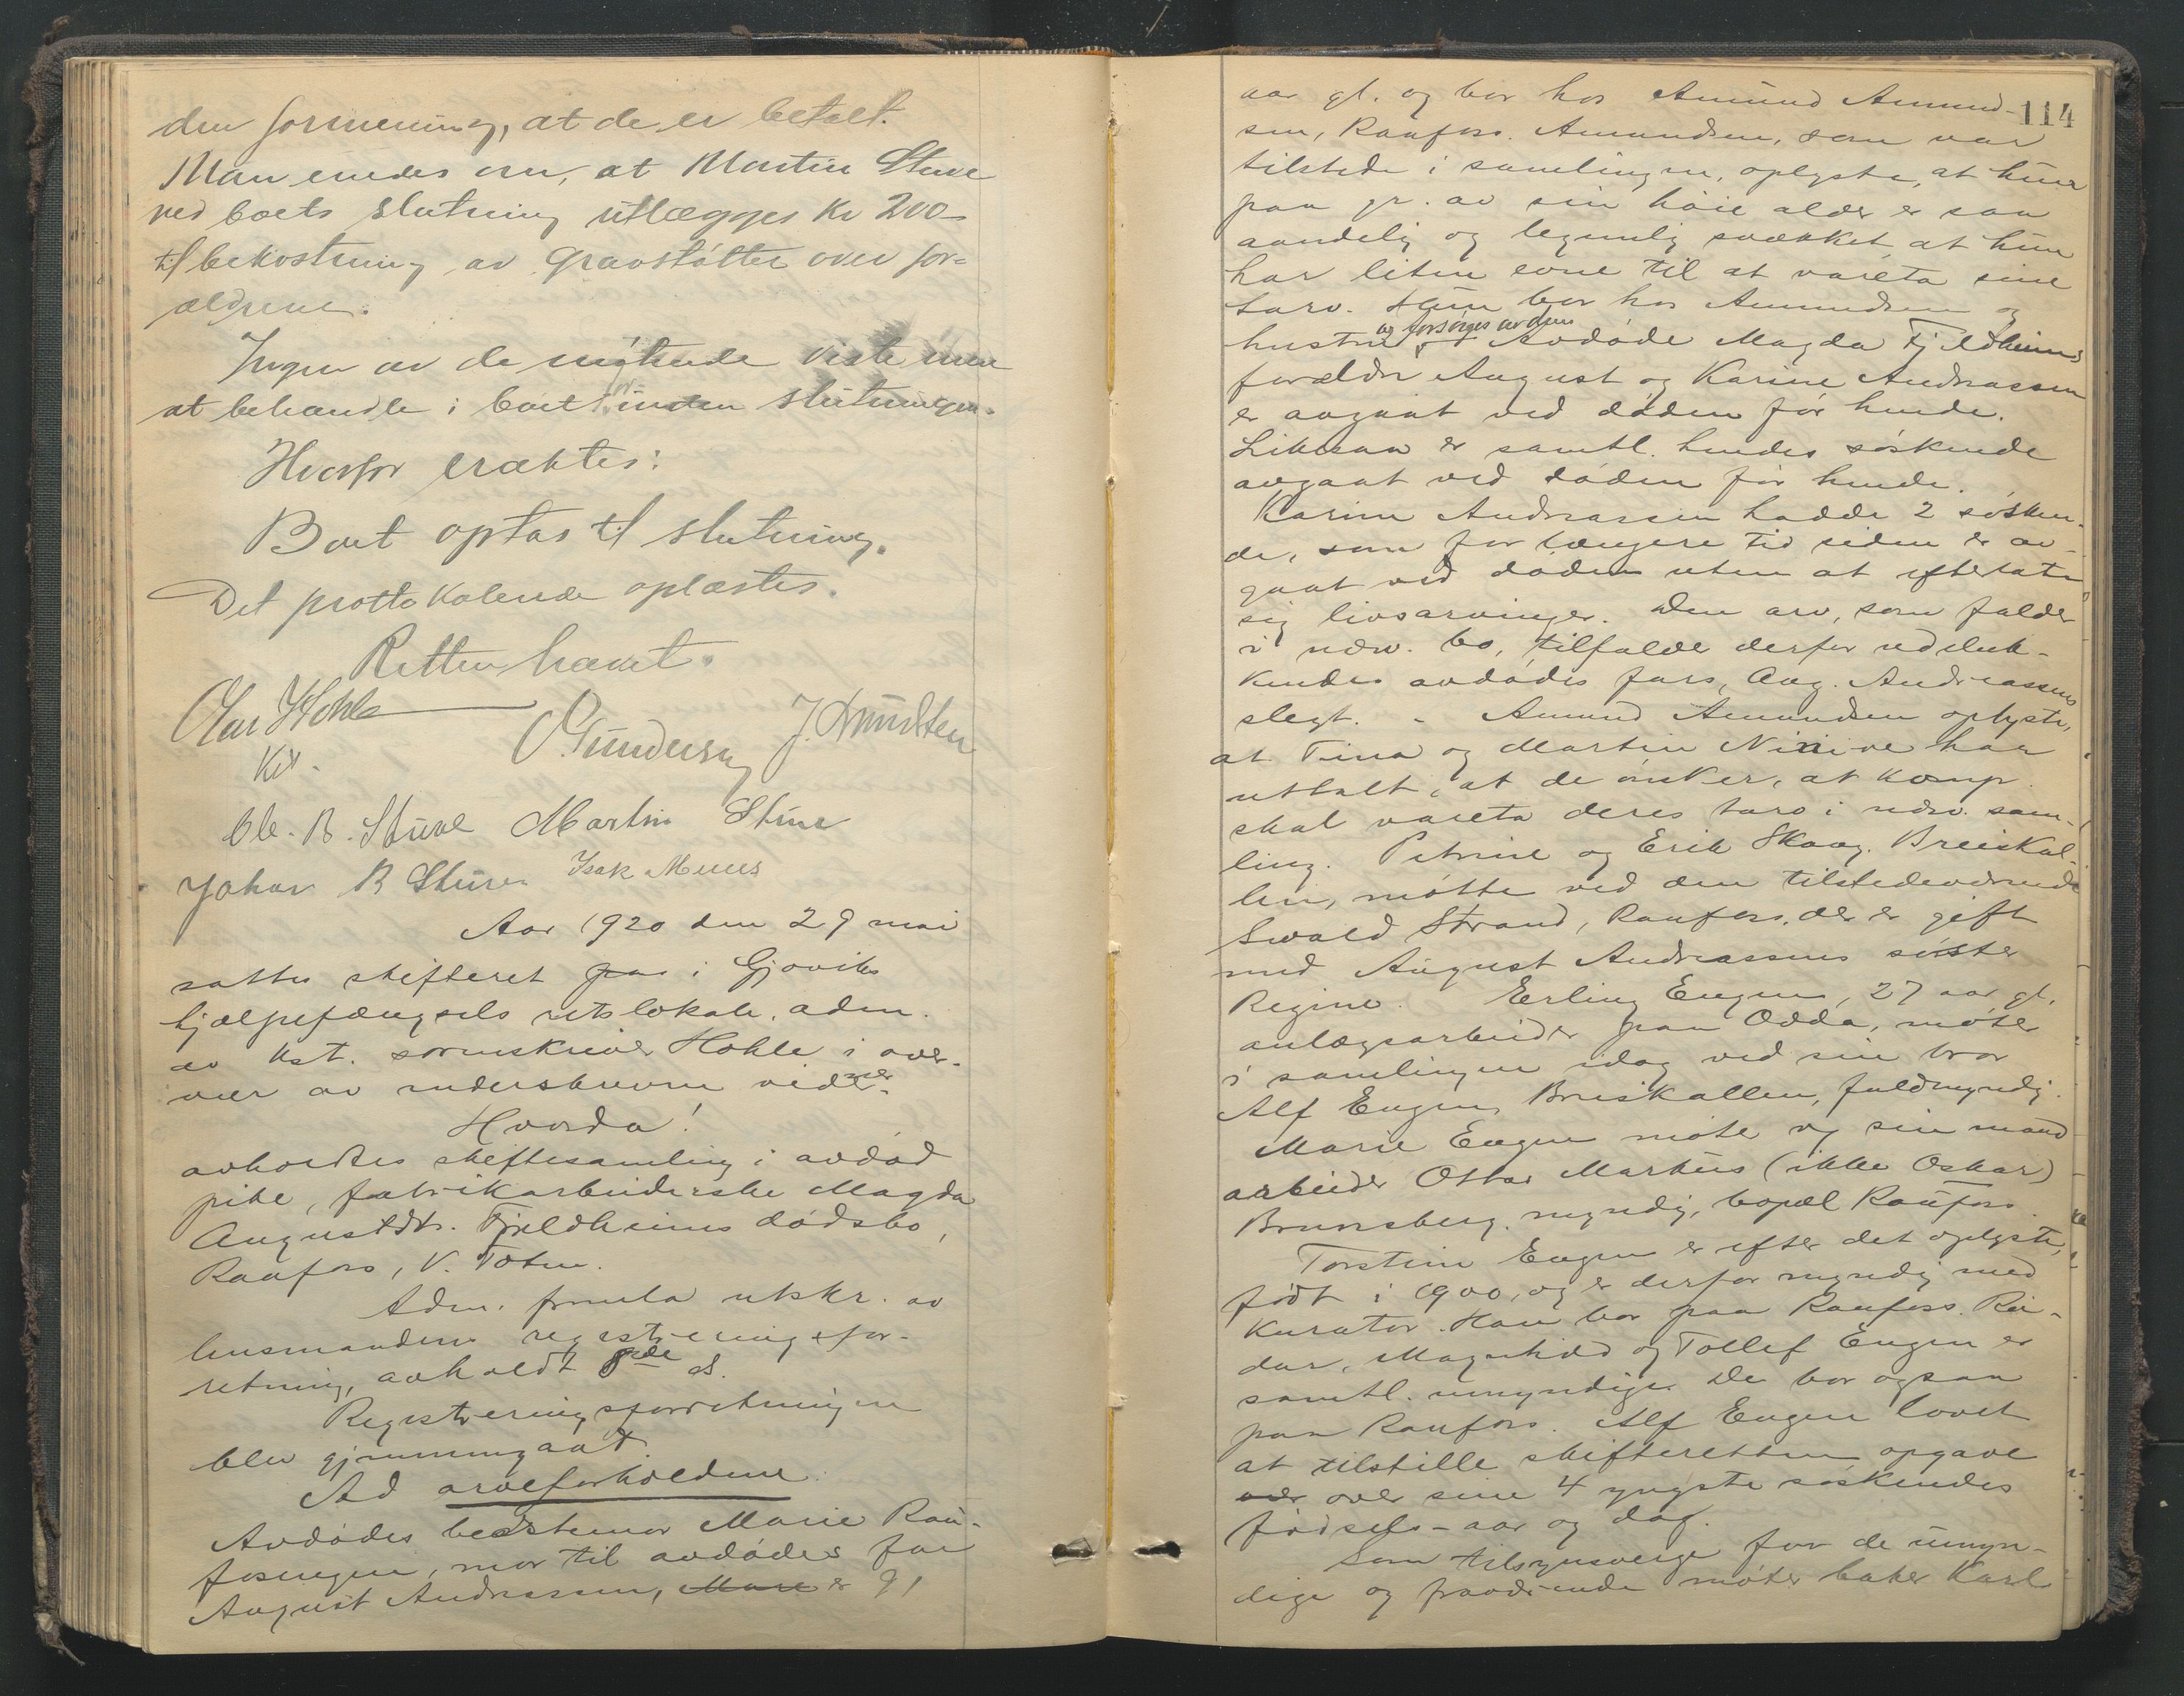 den formening, at de er betalt.
Man enedes om, at Martin Stuve
ved boets slutning utlægges Kr 200-
til bekostning av gravstøtter over for-
ældrene.
Ingen av de møtende viste mere
at behandle i boet inden slutningen.
Hvorfor eraktes:
Boet optas til slutning.
Det prottokolerede oplæstes.
Retten hævet.
Olav Hohle
Kst.
O Gundersen J. Knudsen
Ole. B. Stuve Martin Stuve
Johan B Stuve Isak Moens
Aar 1920 den 29 mai
sattes skifteret paa i Gjøviks
hjælpefængsels retslokale, adm.
av kst. sorenskriver Hohle i over-
vær av underskrevne vidner.
Hvorda!
avholdtes skiftesamling i avdød
pike, fabrikarbeiderske Magda
Augustdtr. Fjeldheims dødsbo,
Raufoss, V. Toten.
Adm. fremla utskr. av
lensmandens registreringsfor-
retning, avholdt 8de ds.
Registreringsforretningen
blev gjennemgaat.
Ad arveforholdene.
Avdødes bedstemor Marie Rau-
fosengen, mor til avdødes far
August Andreassen, Marie er 91
114
aar gl. og bor hos Amund Amund-
sen, Raufoss. Amundsen, som var
tilstede i samlingen, oplyste, at hun
paa gr. av sin høie alder er saa
aandelig og legemlig svækket, at hun
har liten evne til at vareta sine
tarv. Hun bor hos Amundsen og
hustru og forsørges av dem Avdøde Magda Fjeldheims
forældre August og Karine Andreassen
er avgaat ved døden før hende.
Likesaa er samtl. hendes søskende
avgaat ved døden før hende.
Karine Andreassen hadde 2 søsken-
de, som for længere tid siden er av-
gaat ved døden uten at efterlate
sig livsarvinger. Den arv, som falder
i nærv. bo, tilfalder derfor uteluk-
kendes avdødes fars, Aug. Andreassens
slegt. - Amund Amundsen oplyste,
at Tina og Martin Ninive har
uttalt, at de ønsker, at komp.
skal vareta deres tarv i nærv. sam-
ling. Petrine og Erik Skaug, Breiskal-
len, møtte ved den tilstedeværende
Sivald Strand, Raufoss, der er gift
med August Andreassens søster
Regine. Erling Engen, 27 aar gl.
anlægsarbeider paa Odda, møter
i samlingen idag ved sin bror
Alf Engen, Breiskallen, fuldmyndig.
Marie Engen møter og sin mand
arbeider Ottar Markus (ikke Oskar)
Brunsberg, myndig, bopæl Raufoss.
Torstein Engen er efter det oplyste,
født i 1900, og er derfor myndig med
kurator. Han bor paa Raufoss. Rei-
dar, Magnhild og Tollef Engen er
samtl. umyndige. De bor ogsaa
paa Raufoss. Alf Engen lovet
at tilstille skifteretten opgave
over over sine 4 yngste søskendes
fødsels-aar og dag.
Som tilsynsverge for de umyn-
dige og fraværende møter baker Karl